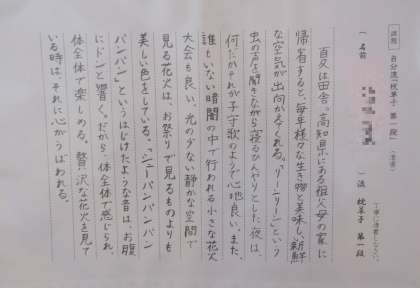 課題 自分流「枕草子 第一段」(清書)
丁寧に清書しなさい。
(名前 )流 枕草子 第一段
夏は田舎。高知県にある祖父母の家に
帰省すると、毎年様々な生き物と美味しい新鮮
な空気が出向かえてくれる。「リーンリー」という
虫の声を聞きながら寝るひんやりとした夜は、
何だかそれが子守歌のようで心地良い。また、
誰もいない暗闇の中で行われる小さな花火
大会も良い。光の少ない静かな空間で
見る花火は、お祭りで見るものよりも
美しい色をしている。「シューパンパンパン
パンパン」というはじけたような音は、お腹
にドンと響く。だから体全体で感じられ
体全体で楽しめる。贅沢な花火を見て
いる時は、それに心がうばわれる。